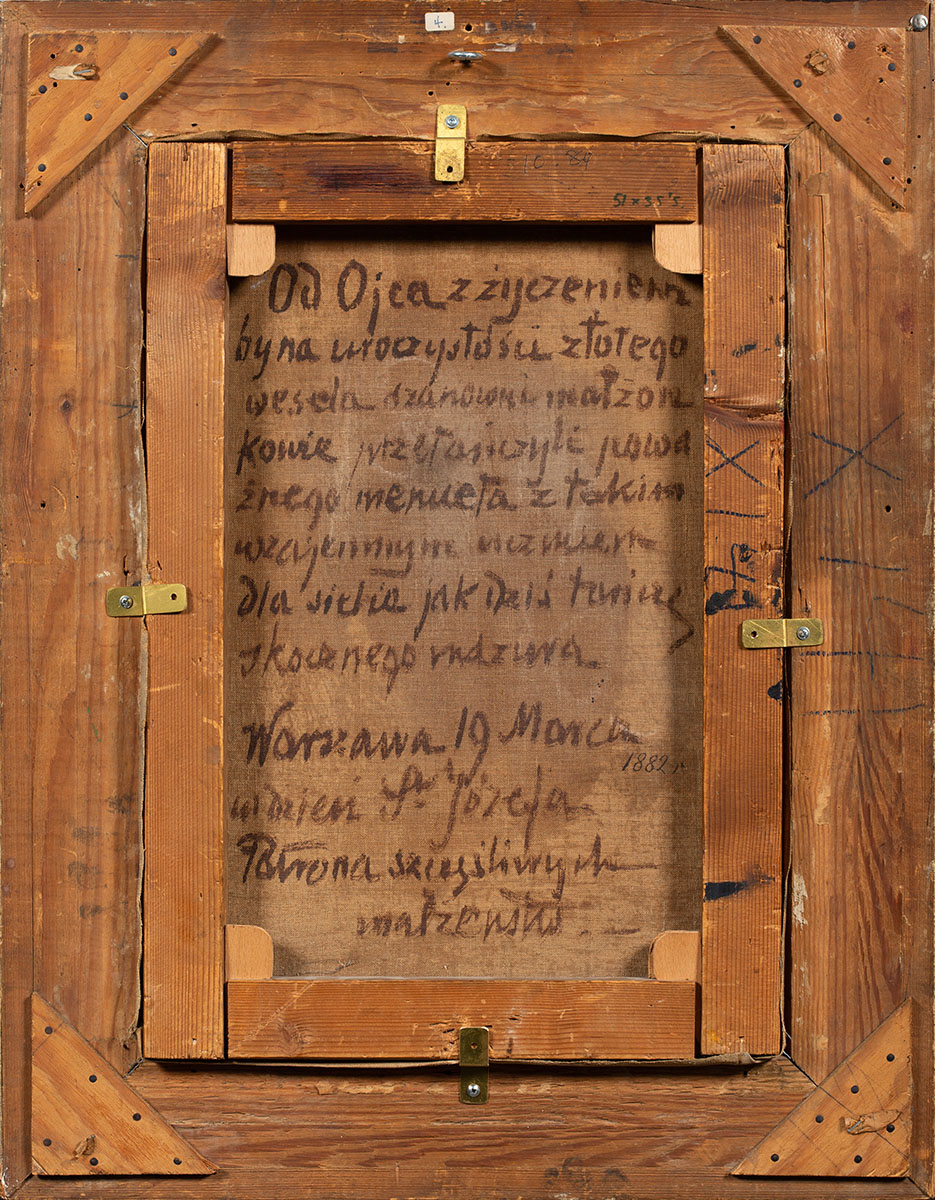 4.
10.89
51 x 35's.
Od Ojca z życzeniem
by na uroczystości złotego
wesela szanowni małżon
kowie przetańczyli powa
żnego menueta z takim
wzajemnym
dla siebia jak dziś tańczę
skocznego mazura
Warszawa 19 Marca
1882 r
w dzień St Józefa
Patrona szczęśliwych
małżeństw